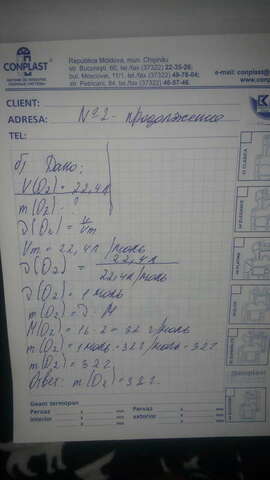 CONPLAST
Republica Moldova, mun. Chişinău
str. Bucureşti, 60, tel./fax (37322) 22-35-26;
bul. Moscovei, 11/1, tel./fax (37322) 49-78-04;
str. Petricani, 84, tel./fax (37322) 46-57-46.
www.conplast
e-mail: conplast@
CLIENT:
ADRESA: №2 - продолжение
TEL:
б) Дано:
V(O2) = 22,4 л
m(O2) - ?
ν(O2) = V/Vm
Vm = 22,4 л/моль
ν(O2) = 22,4 л / 22,4 л/моль
ν(O2) = 1 моль
m(O2) = ν · M
M(O2) = 16·2 = 32 г/моль
m(O2) = 1 моль · 32 г/моль = 32 г.
m(O2) = 32 г.
Ответ: m(O2) = 32 г.
Geam termopan
Pervaz interior
Pervaz exterior